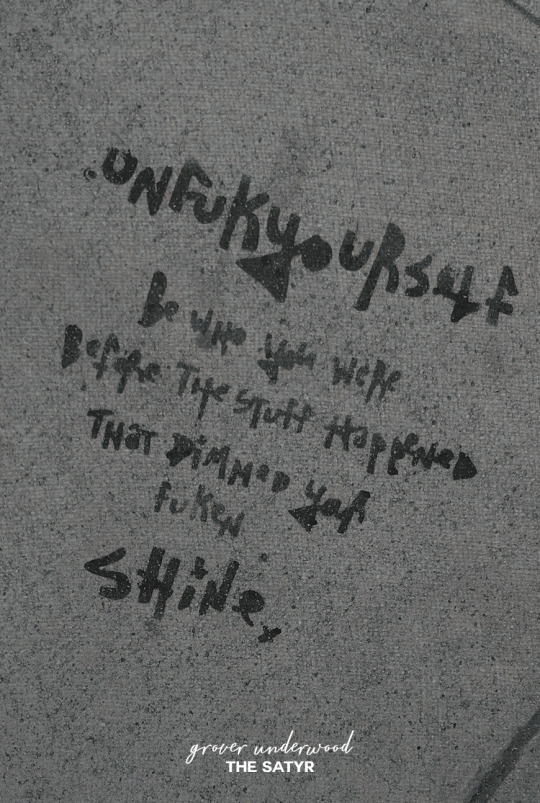 .UNFUKYOURSELF
Be WHO YOU WERE
BEFORE THE STUFF HAPPENED
THAT DIMMED YOUR
FUKEN
SHINE
grover underwood
THE SATYR